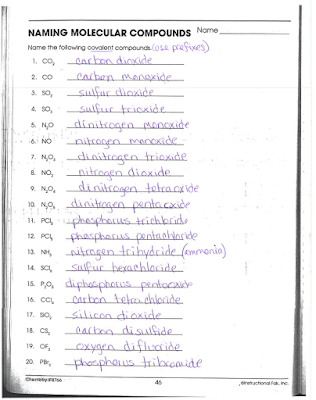 NAMING MOLECULAR COMPOUNDS Name
Name the following covalent compounds. (use prefixes)
1. CO₂ carbon dioxide
2. CO carbon monoxide
3. SO₂ sulfur dioxide
4. SO₃ sulfur trioxide
5. N₂O dinitrogen monoxide
6. NO nitrogen monoxide
7. N₂O₃ dinitrogen trioxide
8. NO₂ nitrogen dioxide
9. N₂O₄ dinitrogen tetraoxide
10. N₂O₅ dinitrogen pentaoxide
11. PCl₃ phosphorus trichloride
12. PCl₅ phosphorus pentachloride
13. NH₃ nitrogen trihydride (ammonia)
14. SCl₆ sulfur hexachloride
15. P₂O₅ diphosphorus pentaoxide
16. CCl₄ carbon tetrachloride
17. SiO₂ silicon dioxide
18. CS₂ carbon disulfide
19. OF₂ oxygen difluoride
20. PBr₃ phosphorus tribromide
46 ©Instructional Fair, Inc.